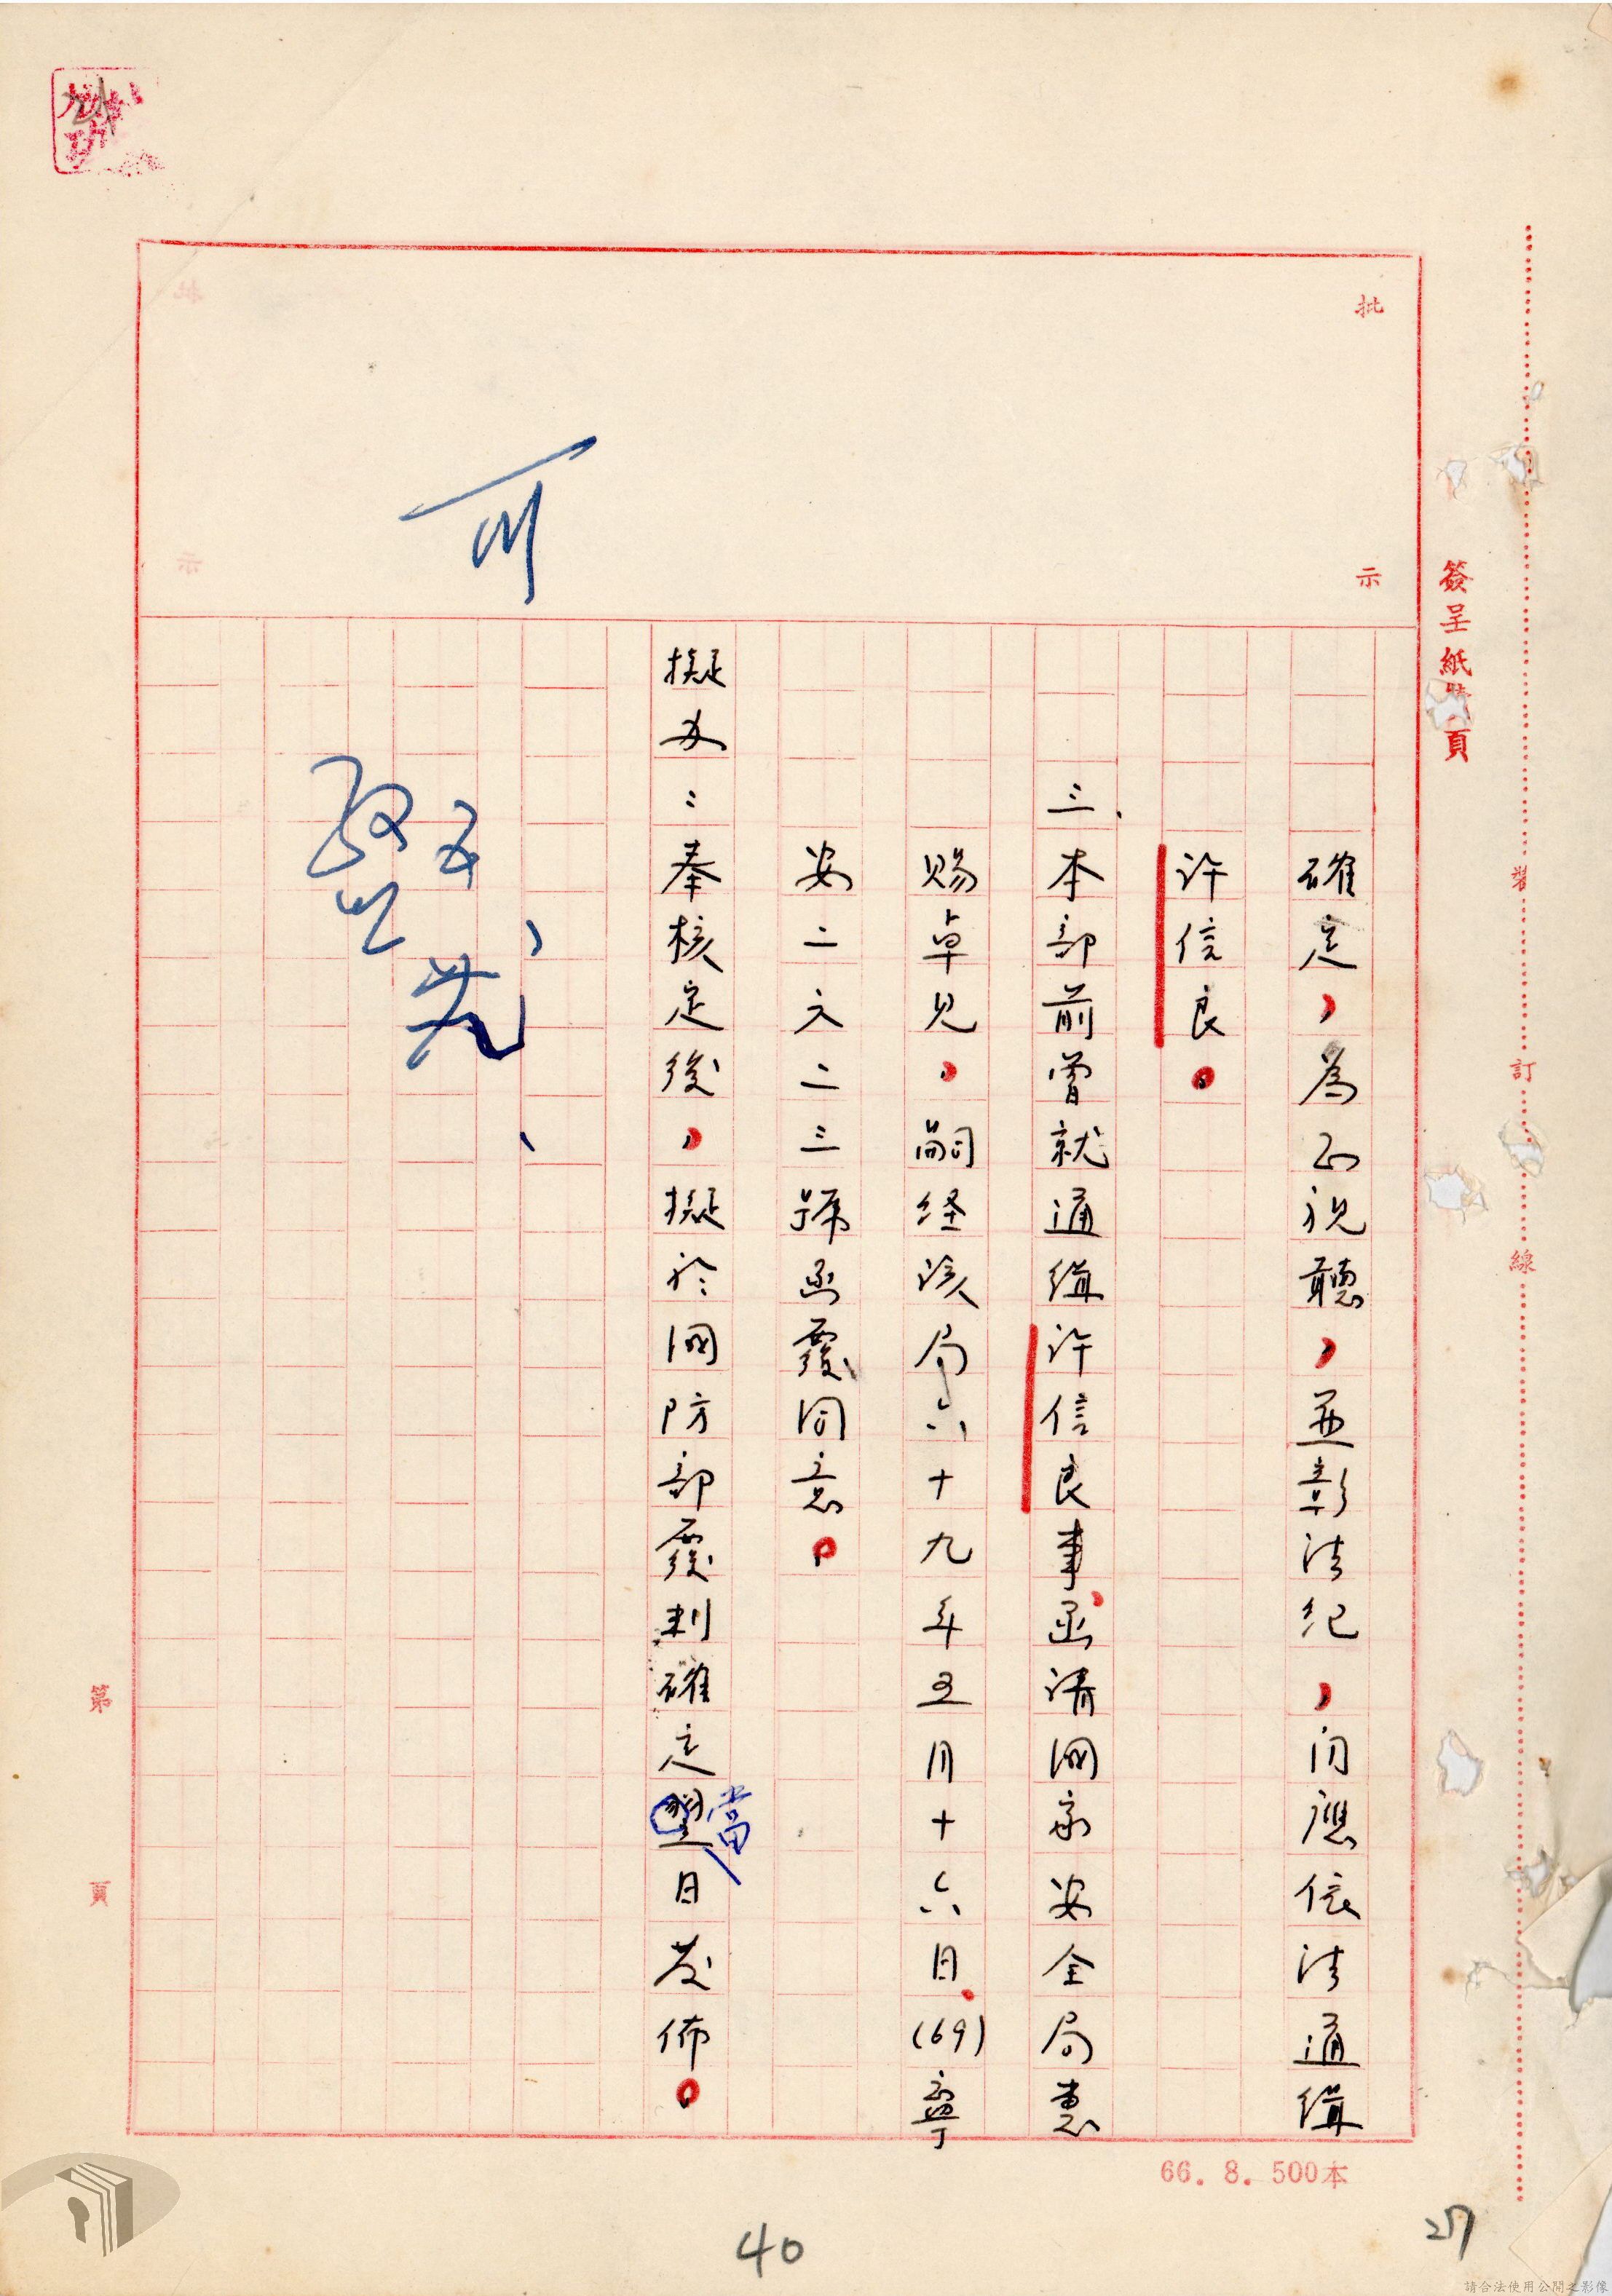 簽呈紙 頁
批 示
可
確定，為正視聽，並彰法紀，自應依法通緝
許信良。
三、本部前曾就通緝許信良事，函請國家安全局惠
賜卓見，嗣經該局六十九年五月十六日，(69)寧
安二六二三號函覆同意。
擬办：奉核定後，擬於國防部覆判確定翌當日發佈。
裝 訂 線
第 頁
66. 8. 500本
40
27
請合法使用公開之影像